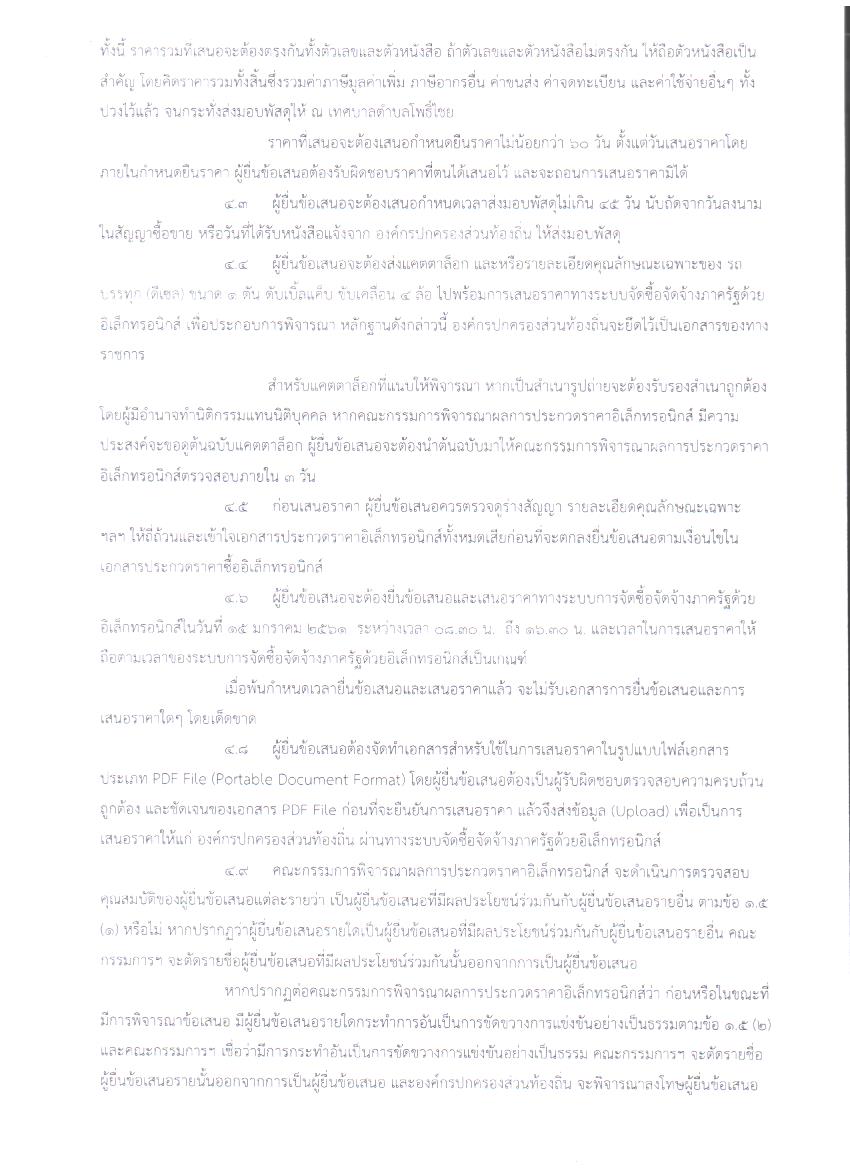 ทั้งนี้ ราคารวมที่เสนอจะต้องตรงกันทั้งตัวเลขและตัวหนังสือ ถ้าตัวเลขและตัวหนังสือไม่ตรงกัน ให้ถือตัวหนังสือเป็น
สำคัญ โดยคิดราคารวมทั้งสิ้นซึ่งรวมค่าภาษีมูลค่าเพิ่ม ภาษีอากรอื่น ค่าขนส่ง ค่าจดทะเบียน และค่าใช้จ่ายอื่นๆ ทั้ง
ปวงไว้แล้ว จนกระทั่งส่งมอบพัสดุให้ ณ เทศบาลตำบลโพธิ์ไชย
ราคาที่เสนอจะต้องเสนอกำหนดยืนราคาไม่น้อยกว่า ๖๐ วัน ตั้งแต่วันเสนอราคาโดย
ภายในกำหนดยืนราคา ผู้ยื่นข้อเสนอต้องรับผิดชอบราคาที่ตนได้เสนอไว้ และจะถอนการเสนอราคามิได้
๔.๓ ผู้ยื่นข้อเสนอจะต้องเสนอกำหนดเวลาส่งมอบพัสดุไม่เกิน ๔๕ วัน นับถัดจากวันลงนาม
ในสัญญาซื้อขาย หรือวันที่ได้รับหนังสือแจ้งจาก องค์กรปกครองส่วนท้องถิ่น ให้ส่งมอบพัสดุ
๔.๔ ผู้ยื่นข้อเสนอจะต้องส่งแคตตาล็อก และหรือรายละเอียดคุณลักษณะเฉพาะของ รถ
บรรทุก (ดีเซล) ขนาด ๑ ตัน ดับเบิ้ลแค็บ ขับเคลื่อน ๔ ล้อ ไปพร้อมการเสนอราคาทางระบบจัดซื้อจัดจ้างภาครัฐด้วย
อิเล็กทรอนิกส์ เพื่อประกอบการพิจารณา หลักฐานดังกล่าวนี้ องค์กรปกครองส่วนท้องถิ่นจะยึดไว้เป็นเอกสารของทาง
ราชการ
สำหรับแคตตาล็อกที่แนบให้พิจารณา หากเป็นสำเนารูปถ่ายจะต้องรับรองสำเนาถูกต้อง
โดยผู้มีอำนาจทำนิติกรรมแทนนิติบุคคล หากคณะกรรมการพิจารณาผลการประกวดราคาอิเล็กทรอนิกส์ มีความ
ประสงค์จะขอดูต้นฉบับแคตตาล็อก ผู้ยื่นข้อเสนอจะต้องนำต้นฉบับมาให้คณะกรรมการพิจารณาผลการประกวดราคา
อิเล็กทรอนิกส์ตรวจสอบภายใน ๓ วัน
๔.๕ ก่อนเสนอราคา ผู้ยื่นข้อเสนอควรตรวจดูร่างสัญญา รายละเอียดคุณลักษณะเฉพาะ
ฯลฯ ให้ถี่ถ้วนและเข้าใจเอกสารประกวดราคาอิเล็กทรอนิกส์ทั้งหมดเสียก่อนที่จะตกลงยื่นข้อเสนอตามเงื่อนไขใน
เอกสารประกวดราคาซื้ออิเล็กทรอนิกส์
๔.๖ ผู้ยื่นข้อเสนอจะต้องยื่นข้อเสนอและเสนอราคาทางระบบการจัดซื้อจัดจ้างภาครัฐด้วย
อิเล็กทรอนิกส์ในวันที่ ๑๕ มกราคม ๒๕๖๑ ระหว่างเวลา ๐๘.๓๐ น. ถึง ๑๖.๓๐ น. และเวลาในการเสนอราคาให้
ถือตามเวลาของระบบการจัดซื้อจัดจ้างภาครัฐด้วยอิเล็กทรอนิกส์เป็นเกณฑ์
เมื่อพ้นกำหนดเวลายื่นข้อเสนอและเสนอราคาแล้ว จะไม่รับเอกสารการยื่นข้อเสนอและการ
เสนอราคาใดๆ โดยเด็ดขาด
๔.๘ ผู้ยื่นข้อเสนอต้องจัดทำเอกสารสำหรับใช้ในการเสนอราคาในรูปแบบไฟล์เอกสาร
ประเภท PDF File (Portable Document Format) โดยผู้ยื่นข้อเสนอต้องเป็นผู้รับผิดชอบตรวจสอบความครบถ้วน
ถูกต้อง และชัดเจนของเอกสาร PDF File ก่อนที่จะยืนยันการเสนอราคา แล้วจึงส่งข้อมูล (Upload) เพื่อเป็นการ
เสนอราคาให้แก่ องค์กรปกครองส่วนท้องถิ่น ผ่านทางระบบจัดซื้อจัดจ้างภาครัฐด้วยอิเล็กทรอนิกส์
๔.๙ คณะกรรมการพิจารณาผลการประกวดราคาอิเล็กทรอนิกส์ จะดำเนินการตรวจสอบ
คุณสมบัติของผู้ยื่นข้อเสนอแต่ละรายว่า เป็นผู้ยื่นข้อเสนอที่มีผลประโยชน์ร่วมกันกับผู้ยื่นข้อเสนอรายอื่น ตามข้อ ๑.๕
(๑) หรือไม่ หากปรากฏว่าผู้ยื่นข้อเสนอรายใดเป็นผู้ยื่นข้อเสนอที่มีผลประโยชน์ร่วมกันกับผู้ยื่นข้อเสนอรายอื่น คณะ
กรรมการฯ จะตัดรายชื่อผู้ยื่นข้อเสนอที่มีผลประโยชน์ร่วมกันนั้นออกจากการเป็นผู้ยื่นข้อเสนอ
หากปรากฏต่อคณะกรรมการพิจารณาผลการประกวดราคาอิเล็กทรอนิกส์ว่า ก่อนหรือในขณะที่
มีการพิจารณาข้อเสนอ มีผู้ยื่นข้อเสนอรายใดกระทำการอันเป็นการขัดขวางการแข่งขันอย่างเป็นธรรมตามข้อ ๑.๕ (๒)
และคณะกรรมการฯ เชื่อว่ามีการกระทำอันเป็นการขัดขวางการแข่งขันอย่างเป็นธรรม คณะกรรมการฯ จะตัดรายชื่อ
ผู้ยื่นข้อเสนอรายนั้นออกจากการเป็นผู้ยื่นข้อเสนอ และองค์กรปกครองส่วนท้องถิ่น จะพิจารณาลงโทษผู้ยื่นข้อเสนอ